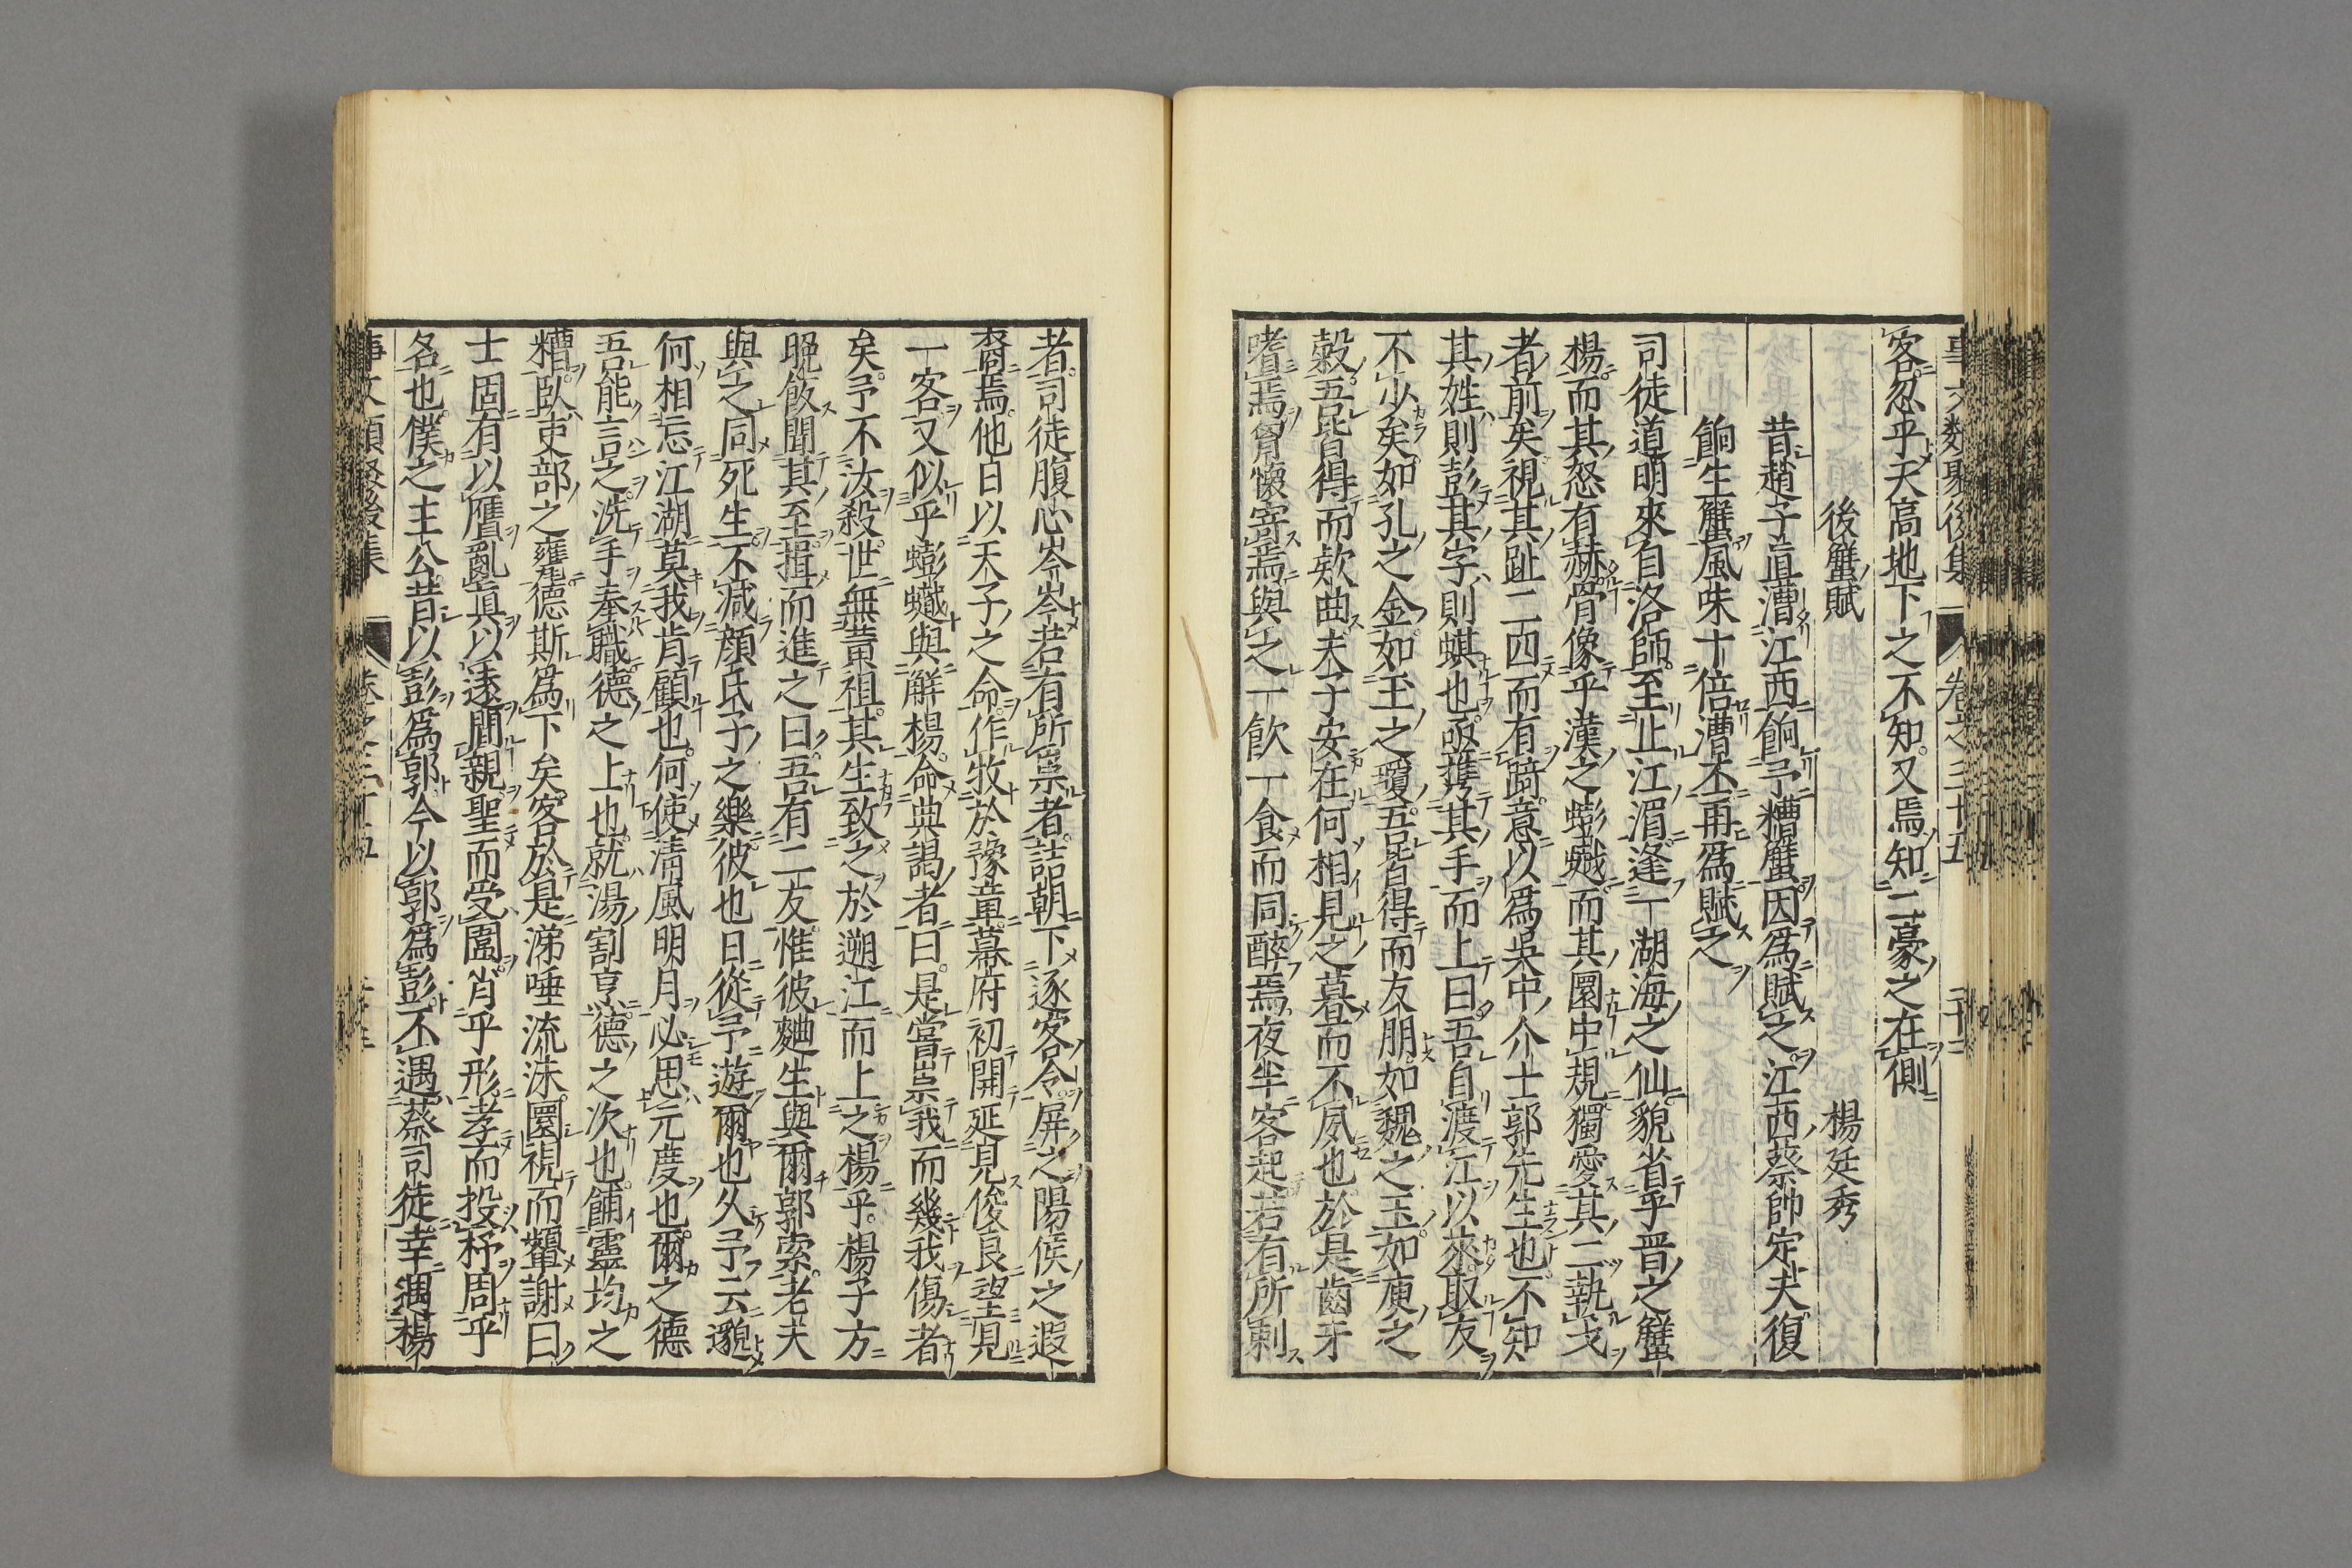 事文類聚後集 卷之三十五 二十二
客忍乎天高地下之不知又焉知二豪之在側
後蟹賦 楊廷秀
昔趙子直漕江西餉予糟蟹因爲賦之江西蔡帥定夫復
餉生蟹風味十倍漕丕再爲賦之
司徒道明來自洛師至止江湄逢一湖海之仙貌省乎晋之蟹
楊而其怒有赫骨像乎漢之蟛蠘而其圜中規獨愛其二執戈
者前矣視其趾二四而有踦意以爲吳中介士郭先生也不知
其姓則彭其字則蜞也亟携其手而上曰吾自渡江以來取友
不少矣如孔之金如王之瓊吾皆得而友朋如魏之玉如庾之
榖吾皆得而欵曲夫子安在何相見之暮而不夙也於是齒牙
嗜焉胷懷寄焉與之一飲一食而同醉焉夜半客起若有所剌
者司徒腹心岑岑若有所祟者詰朝下逐客令屏之陽侯之遐
裔焉他日以天子之命作牧於豫章幕府初開延見俊良望見
一客又似乎蟛蠘與解楊命典謁者曰是嘗祟我而幾我傷者
矣予不汝殺世無黃祖其生致之於遡江而上之楊乎楊子方
晩飯聞其至揖而進之曰吾有二友惟彼麯生與爾郭索老夫
與之同死生不减顔氏子之樂彼也日從予遊爾也久予云邈
何相忘江湖莫我肯顧也何使淸風明月必思元度也爾之德
吾能言之洗手奉職德之上也就湯割烹德之次也餔靈均之
糟臥吏部之甕德斯爲下矣客於是涕唾流沫圜視而顰謝曰
士固有以贋亂眞以遠間親聖而受圍肖乎形孝而投杼周乎
名也僕之主公昔以彭爲郭今以郭爲彭不遇蔡司徒幸遇楊
事文類聚後集 卷之三十五